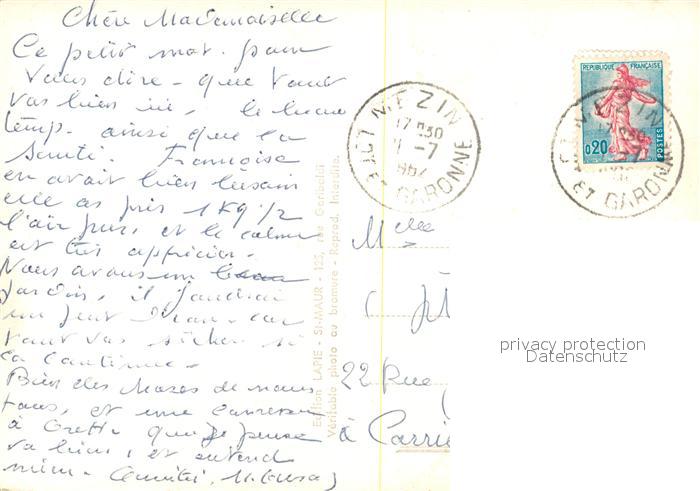 Chère Mademoiselle
Ce petit mot. pour
vous dire - que tout
vas bien ici, le beau
temp. ainsi que la
Santé Françoise
en avait bien besoin
elle as pris 1 Kg 1/2
l'air pur, et le calme
est très apprécier.
Nous avons un beau
Jardin, il faudrai
un peut d'eau. car
tout vas sécher si
ça continue -
Bien des choses de nous
tous, et une caresse
à que je pense
va bien, et entend
mieu - Amitiés,
Edition LAPIE - St-MAUR - 125, rue Garibaldi
Véritable photo au bromure - Reprod. Interdite.
MEZIN
17H30
-7
LOT ET GARONNE
REPUBLIQUE FRANÇAISE
0,20
POSTES
MEZIN
LOT ET GARONNE
Melle
22 Rue
à Carri
privacy protection
Datenschutz